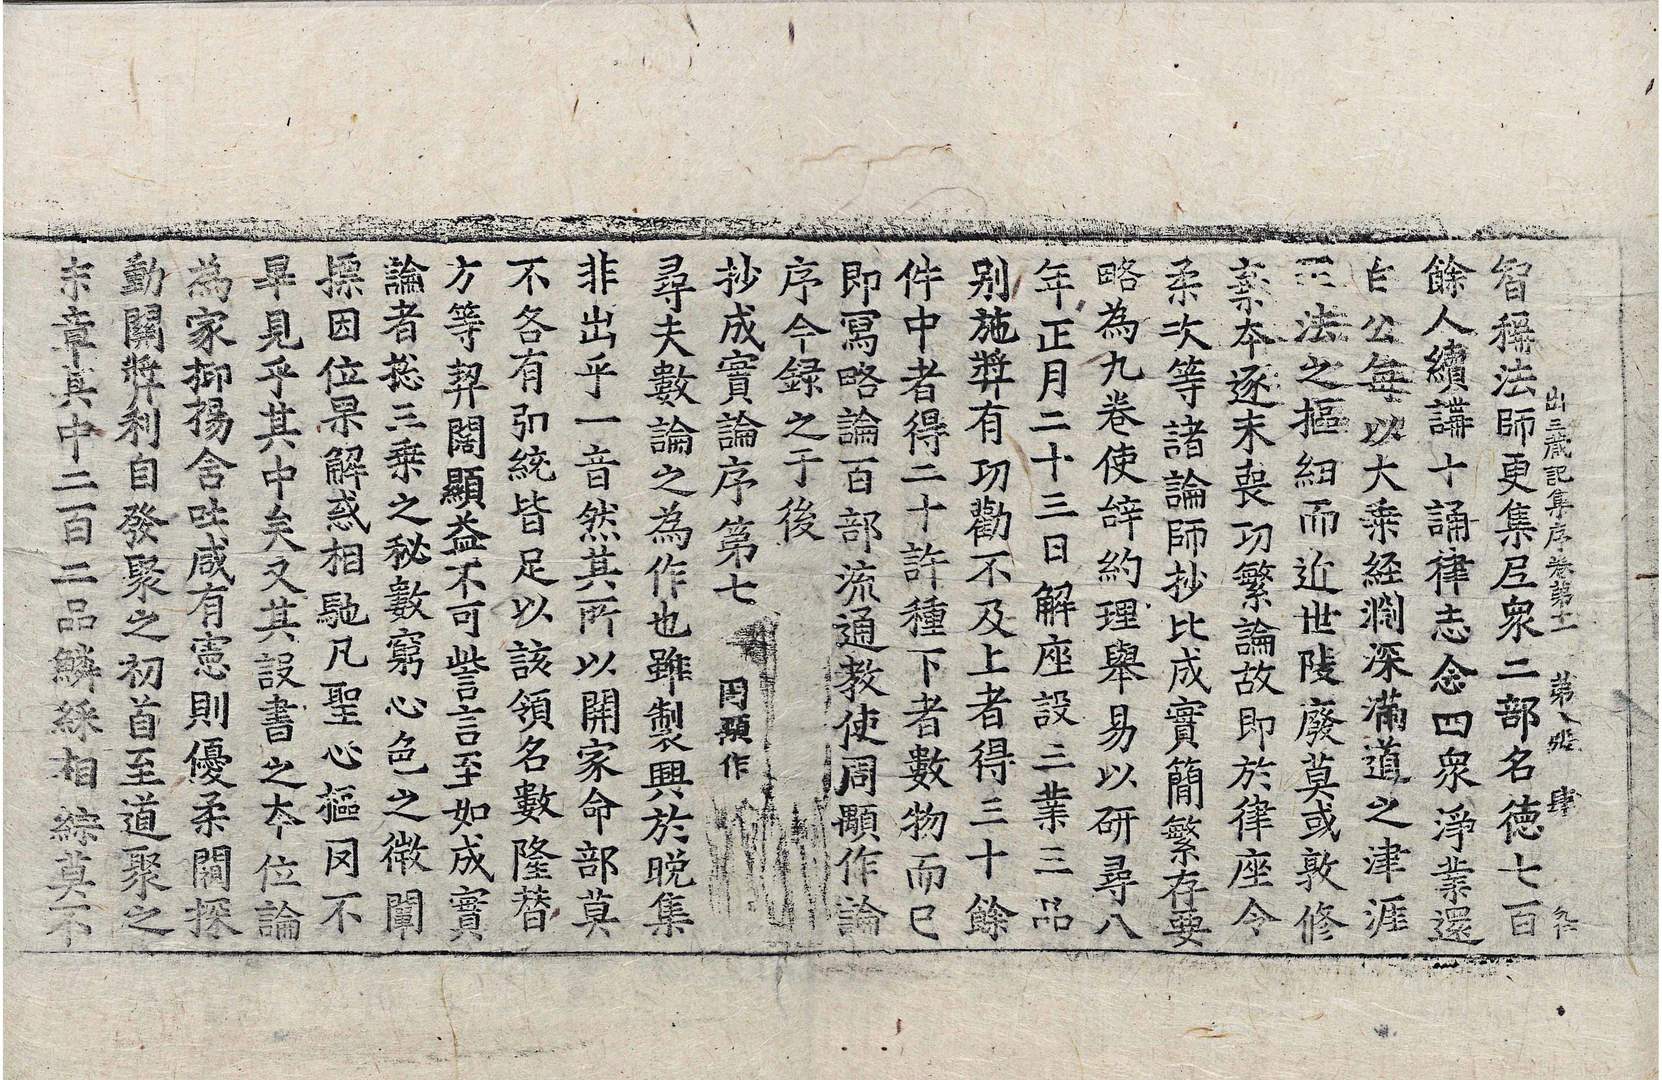 出三藏記集序卷第十一 第八張 肆
智稱法師更集尼衆二部名德七百
餘人續講十誦律志念四衆淨業還
白公每以大乗經淵深滿道之津涯
正法之樞紐而近世陵廢莫或敦修
棄夲逐末喪功繁論故即於律座令
柔次等諸論師抄比成實簡繁存要
略為九卷使辞約理舉易以研尋八
年正月二十三日解座設三業三品
别施奬有功勸不及上者得三十餘
件中者得二十許種下者數物而已
即寫略論百部流通教使周顒作論
序今録之于後
抄成實論序第七 周顒作
尋夫數論之為作也雖製興於晚集
非出乎一音然其所以開家命部莫
不各有弘統皆足以該領名數隆替
方等契闊顯益不可訾言至如成實
論者揔三乗之秘數窮心色之微闡
摽因位果解惑相馳凡聖心樞罔不
畢見乎其中矣又其設書之夲位論
為家抑揚含吐咸有憲則優柔闡探
動關奬利自發聚之初首至道聚之
末章其中二百二品鱗綵相綜莫不